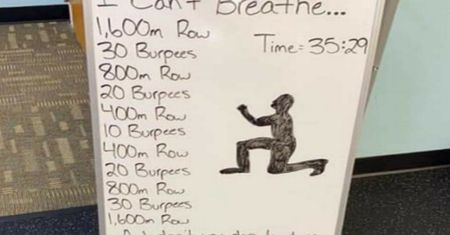 I Can't Breathe...
1,600m Row
Time: 35:29
30 Burpees
800m Row
20 Burpees
400m Row
10 Burpees
400m Row
20 Burpees
800m Row
30 Burpees
1,600m Row